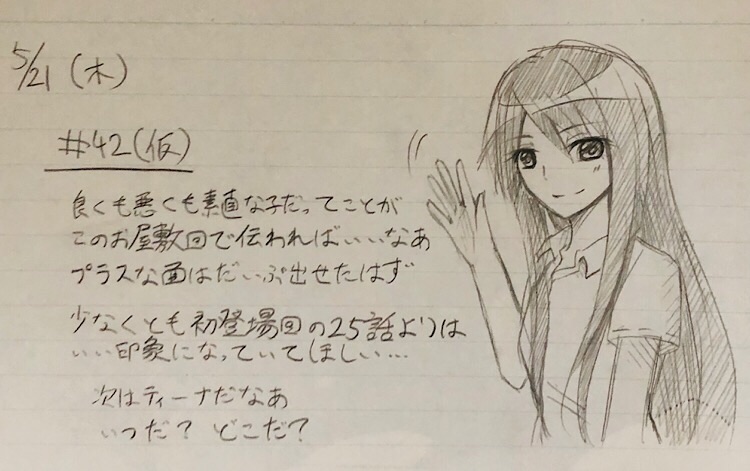 5/21 (木)
#42(仮)
良くも悪くも素直な子だってことが
このお屋敷回で伝わればいいなあ
プラスな面はだいぶ出せたはず
少なくとも初登場回の25話よりは
いい印象になっていてほしい…
次はティーナだなあ
いつだ? どこだ?